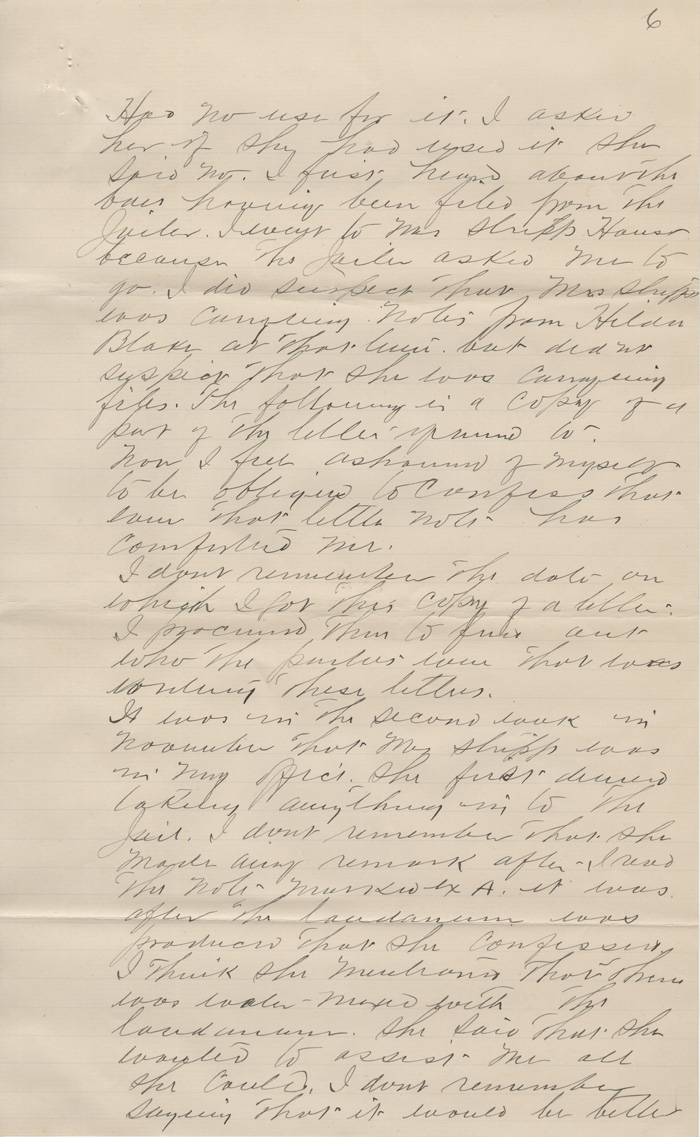 6
Had no use for it. I asked
her if she had used it she
said no. I first heard about the
bars having been filed from the
Jailer. I went to Mrs Stripp House
because the Jailer asked me to
go. I did suspect that Mrs Stripp
was carrying notes from Hilda
Blake at that time. but did not
suspect that she was carrying
files. The following is a copy of a
part of the letter referred to.
Now I feel ashamed of myself
to be obliged to confess that
even that little note has
comforted me.
I dont remember the date on
which I got this copy of a letter.
I procured them to find out
who the parties were that was
writing these letters.
It was in the second week in
November that Mrs Stripp was
in my office. She first denied
taking anything in to the
Jail. I dont remember that she
made any remark after I read
the note marked ex A. it was
after the laudanum was
produced that she confessed
I think she mentioned that there
was water mixed with the
laudanum. She said that she
wanted to assist me all
she could. I dont remember
saying that it would be better